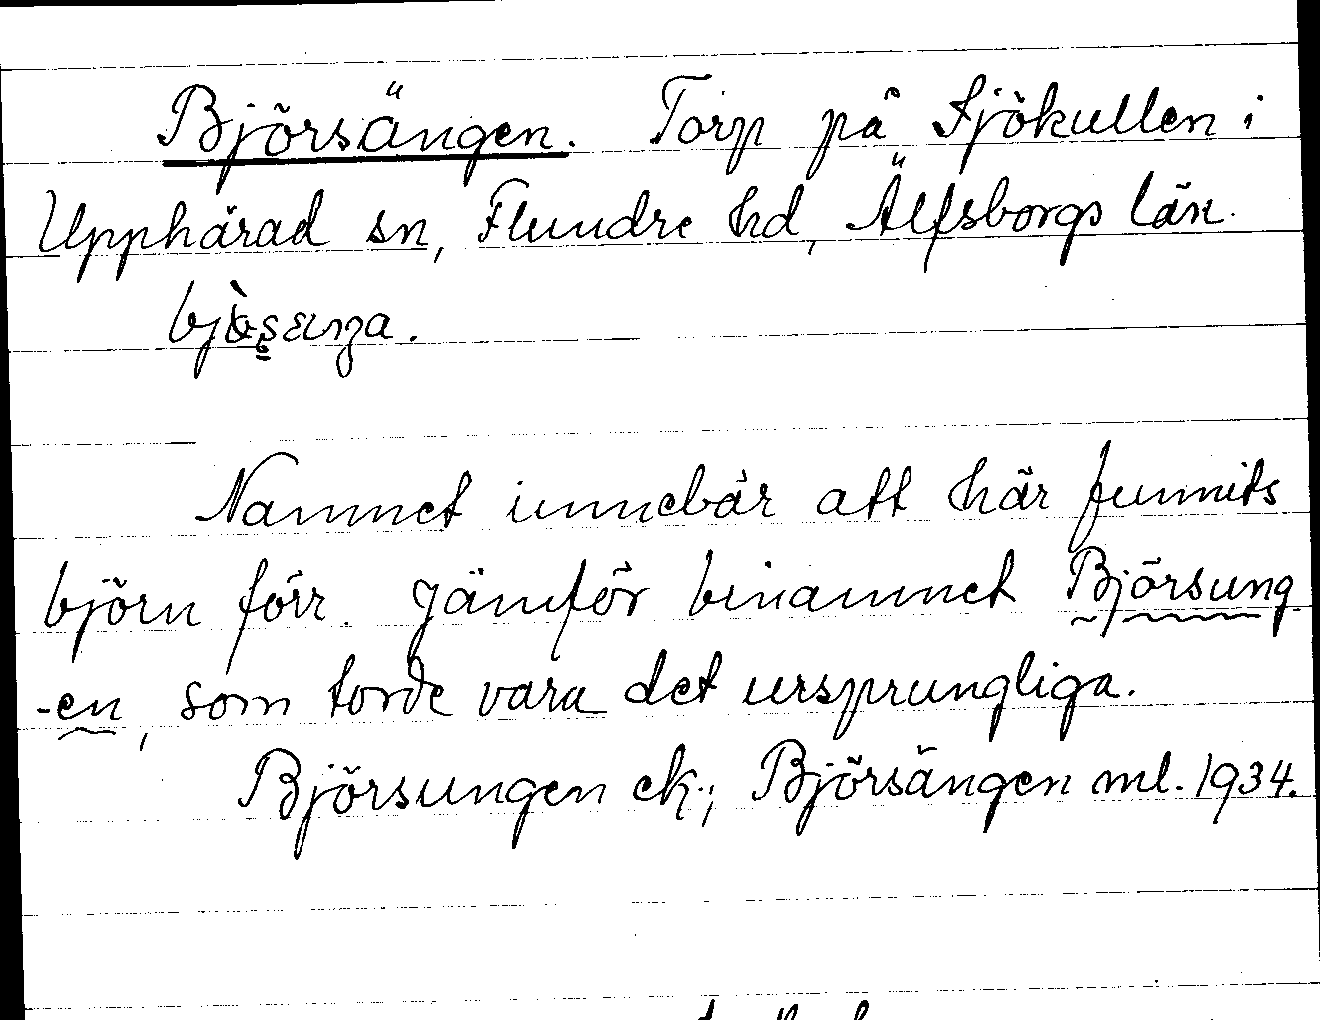 Björsängen. Torp på Sjökullen i
Upphärad sn, Flundre hd, Älfsborgs län.
Namnet innebär att här funnits
björn förr. Jämför binamnet Björsung
-en, som torde vara det ursprungliga.
Björsungen ek.; Björsängen ml. 1934.